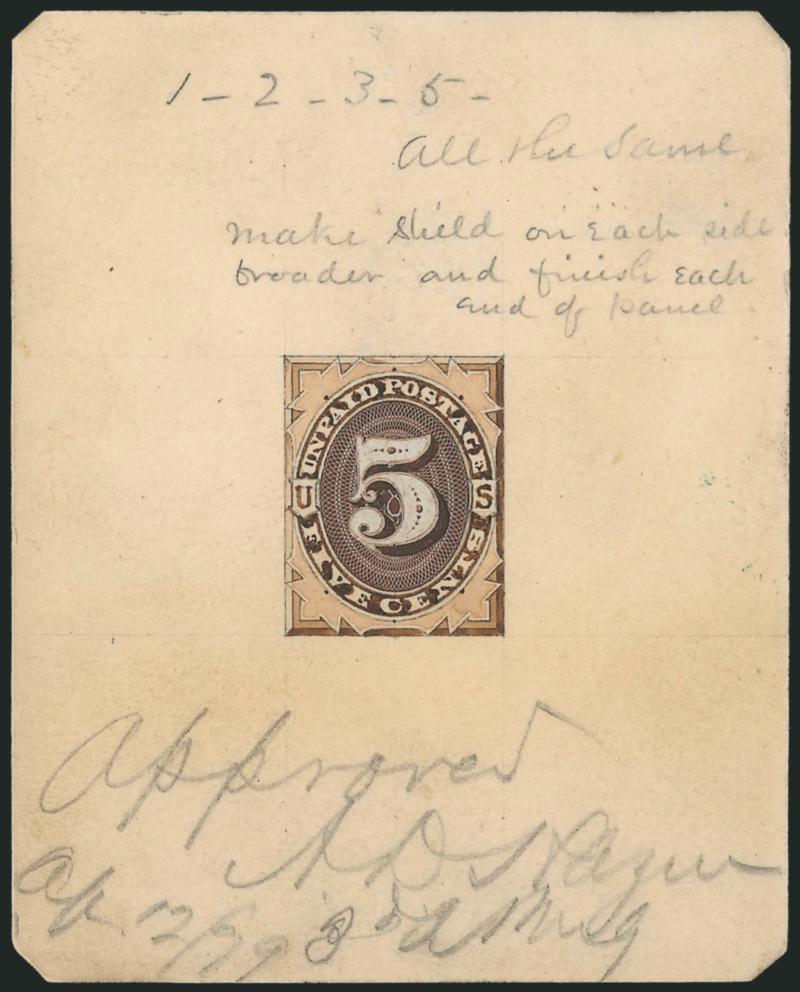 1 - 2 - 3 - 5 -
All the Same
Make Shield on Each side
broader and finish Each
End of Panel
UNPAID POSTAGE
U S
5
FIVE CENTS
Approved
A D Hazen
Ap 12/79 3rd A P M Gl